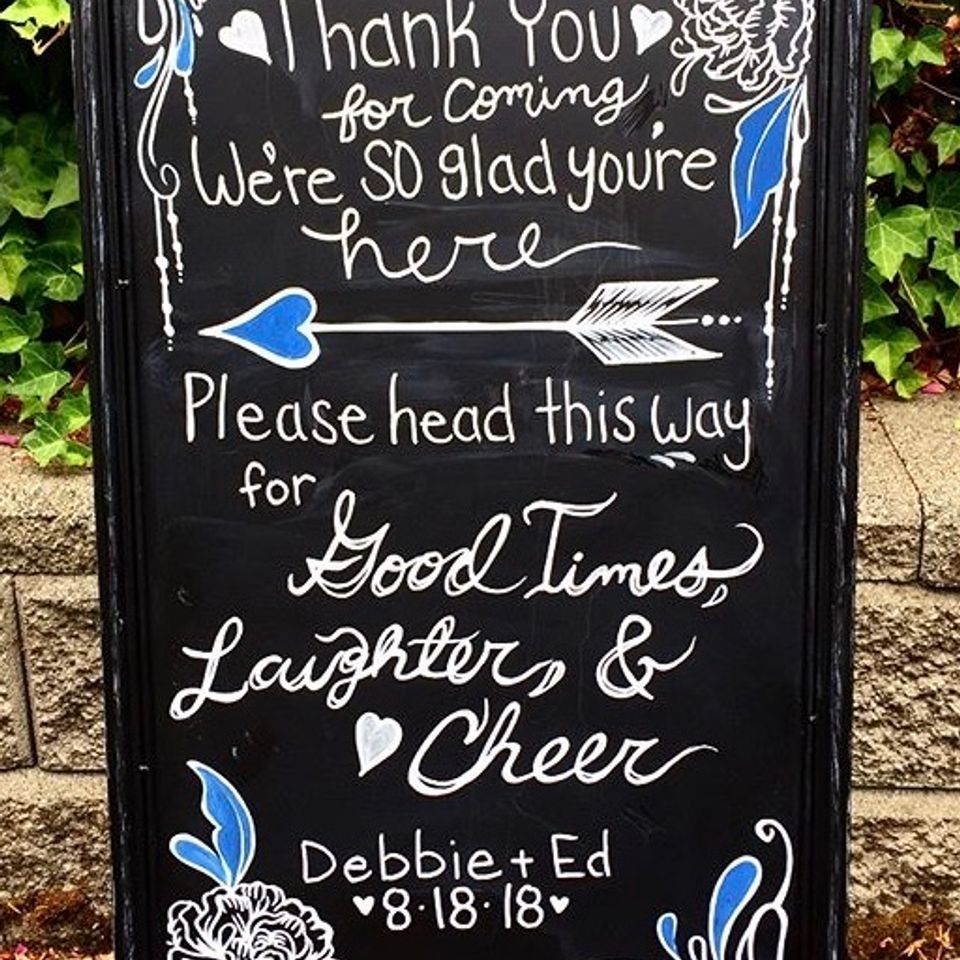 Thank You
for coming
We're SO glad you're
here
Please head this way
for
Good Times,
Laughter, &
Cheer
Debbie + Ed
8·18·18